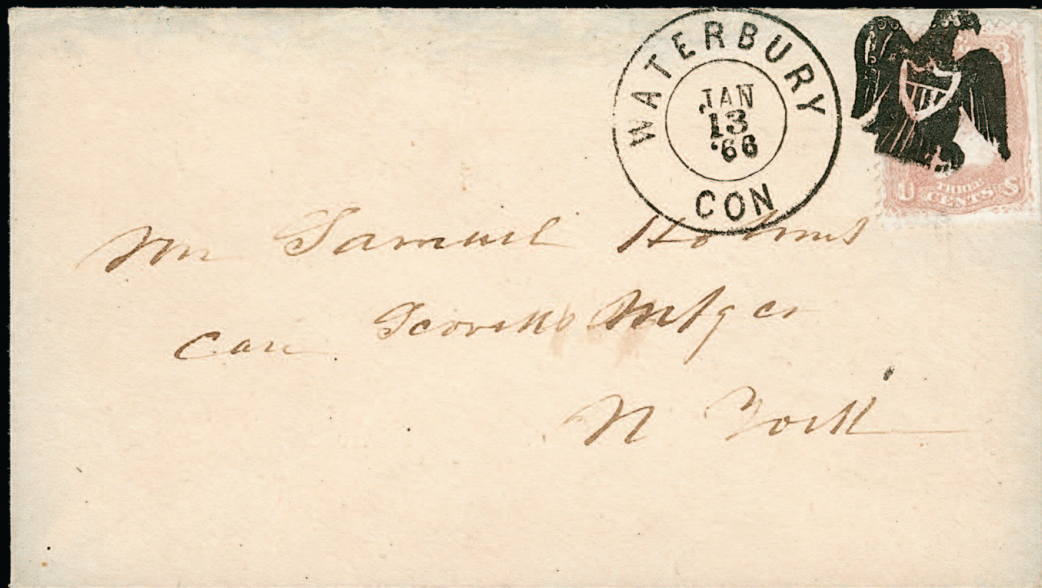 WATERBURY
JAN
13
'66
CON
3
U THREE S
CENTS
Mr Samuel Holmes
Care Scovills Mfg co
N York